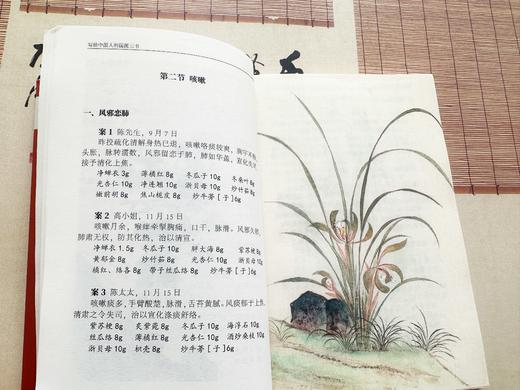 写给中国人的国医三书
第二节 咳嗽
一、风邪恋肺
案1 陈先生,9月7日
昨投疏化清解身热已退,咳嗽咯痰较爽,胸宇不畅,
头胀,脉转濡数,风邪留恋于肺,肺如华盖,宣化生津
接予清化上焦。
净蝉衣 3g 薄橘红 8g 冬瓜子 10g 冬桑叶 8g
光杏仁 10g 净连翘 10g 浙贝母 10g 炒竹茹 8g
嫩前胡 8g 焦山栀皮 8g 炒牛蒡[子]6g
案2 高小姐,11月15日
咳嗽月余,喉痒牵掣胸痛,口干,脉滑,风邪久
肺肃无权,防其化热,治以清宣。
净蝉衣 1.5g 冬瓜子 10g 胖大海 8g 紫苏梗 8g
黄郁金 8g 炒竹茹 8g 光杏仁 10g 浙贝母 10g
橘红、络各 8g 带子丝瓜络 8g 炒牛蒡[子]8g
案3 陈太太,11月15日
咳嗽痰多,手臂酸楚,脉滑,舌苔黄腻。风痰郁于上焦,
清肃之令失司,治以宣化涤痰舒络。
紫苏梗 8g 炙紫菀 8g 冬瓜子 10g 海浮石 10g
丝瓜络 8g 薄橘红 8g 光杏仁 10g 酒炒桑枝 10g
浙贝母 10g 枳壳 8g 炒牛蒡[子]8g